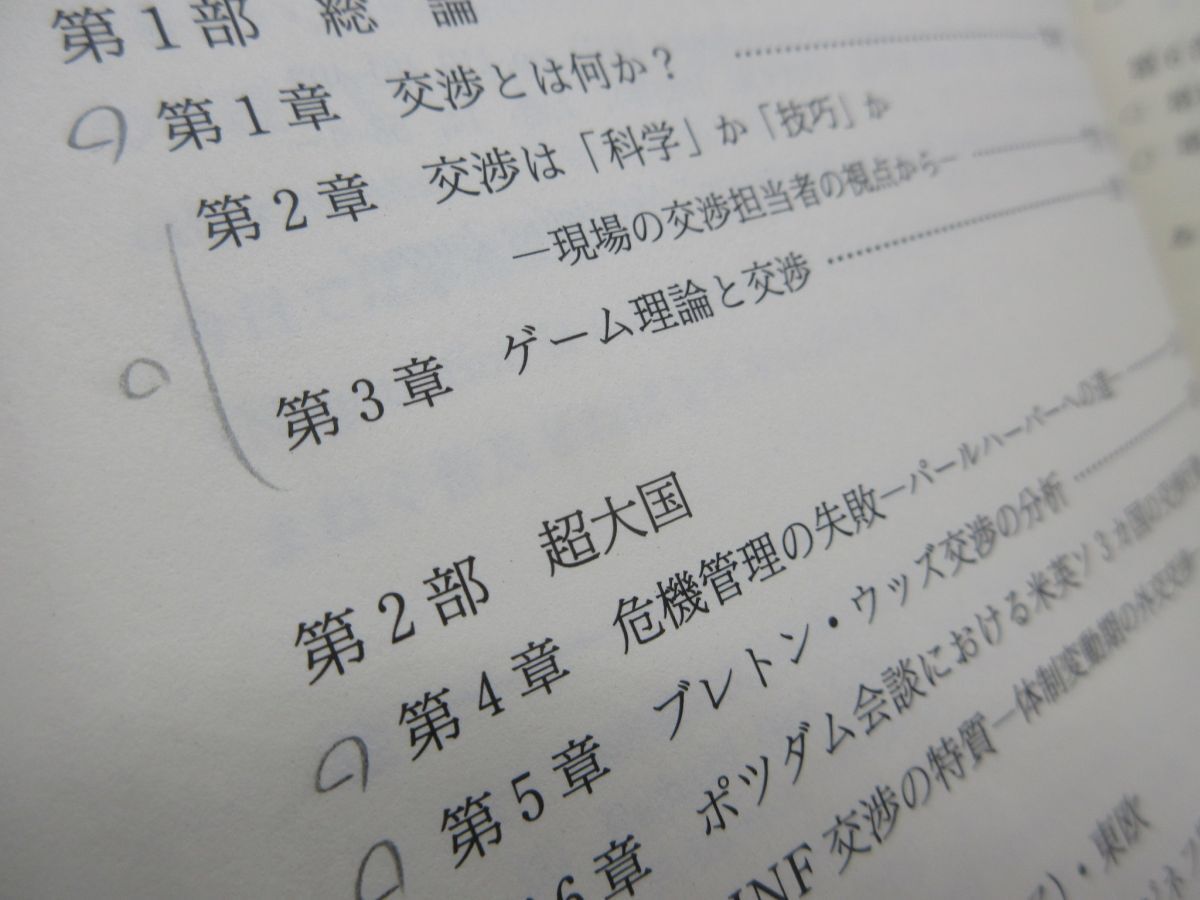 第1部 総 論
第1章 交渉とは何か？
第2章 交渉は「科学」か「技巧」か
―現場の交渉担当者の視点から―
第3章 ゲーム理論と交渉
第2部 超大国
第4章 危機管理の失敗―パールハーバーへの道―
第5章 ブレトン・ウッズ交渉の分析
6章 ポツダム会談における米英ソ3カ国の交渉
INF交渉の特質―体制変動期の外交交渉
・東欧